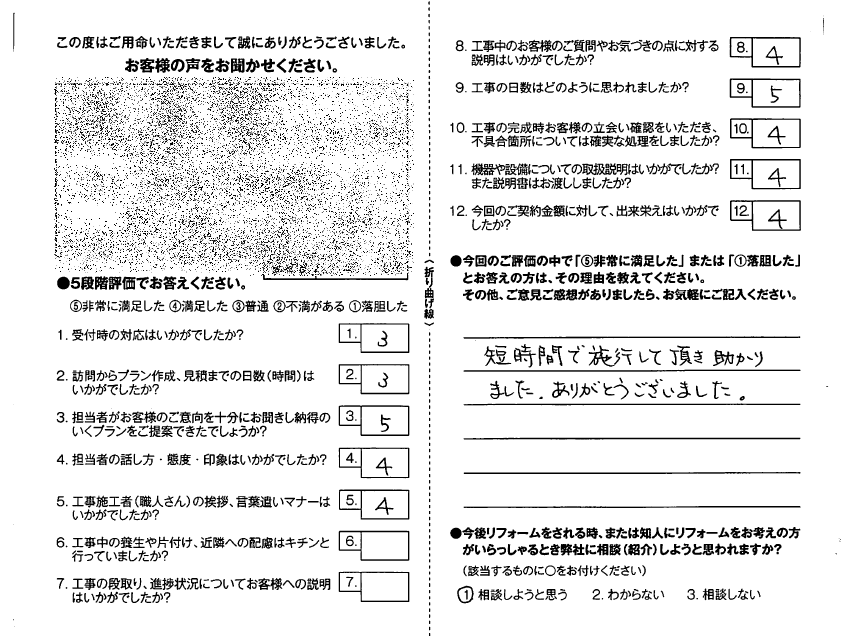 この度はご用命いただきまして誠にありがとうございました。
お客様の声をお聞かせください。
●5段階評価でお答えください。
⑤非常に満足した ④満足した ③普通 ②不満がある ①落胆した
1. 受付時の対応はいかがでしたか？ 1. 3
2. 訪問からプラン作成、見積までの日数（時間）は 2. 3
いかがでしたか？
3. 担当者がお客様のご意向を十分にお聞きし納得の 3. 5
いくプランをご提案できたでしょうか？
4. 担当者の話し方・態度・印象はいかがでしたか？ 4. 4
5. 工事施工者（職人さん）の挨拶、言葉遣いマナーは 5. 4
いかがでしたか？
6. 工事中の養生や片付け、近隣への配慮はキチンと 6.
行っていましたか？
7. 工事の段取り、進捗状況についてお客様への説明 7.
はいかがでしたか？
（折り曲げ線）
8. 工事中のお客様のご質問やお気づきの点に対する 8. 4
説明はいかがでしたか？
9. 工事の日数はどのように思われましたか？ 9. 5
10. 工事の完成時お客様の立会い確認をいただき、 10. 4
不具合箇所については確実な処理をしましたか？
11. 機器や設備についての取扱説明はいかがでしたか？ 11. 4
また説明書はお渡ししましたか？
12. 今回のご契約金額に対して、出来栄えはいかがで 12. 4
したか？
●今回のご評価の中で「⑤非常に満足した」または「①落胆した」
とお答えの方は、その理由を教えてください。
その他、ご意見ご感想がありましたら、お気軽にご記入ください。
短時間で施行して頂き助かり
ました。ありがとうございました。
●今後リフォームをされる時、または知人にリフォームをお考えの方
がいらっしゃるとき弊社に相談（紹介）しようと思われますか？
（該当するものに○をお付けください）
① 相談しようと思う 2. わからない 3. 相談しない